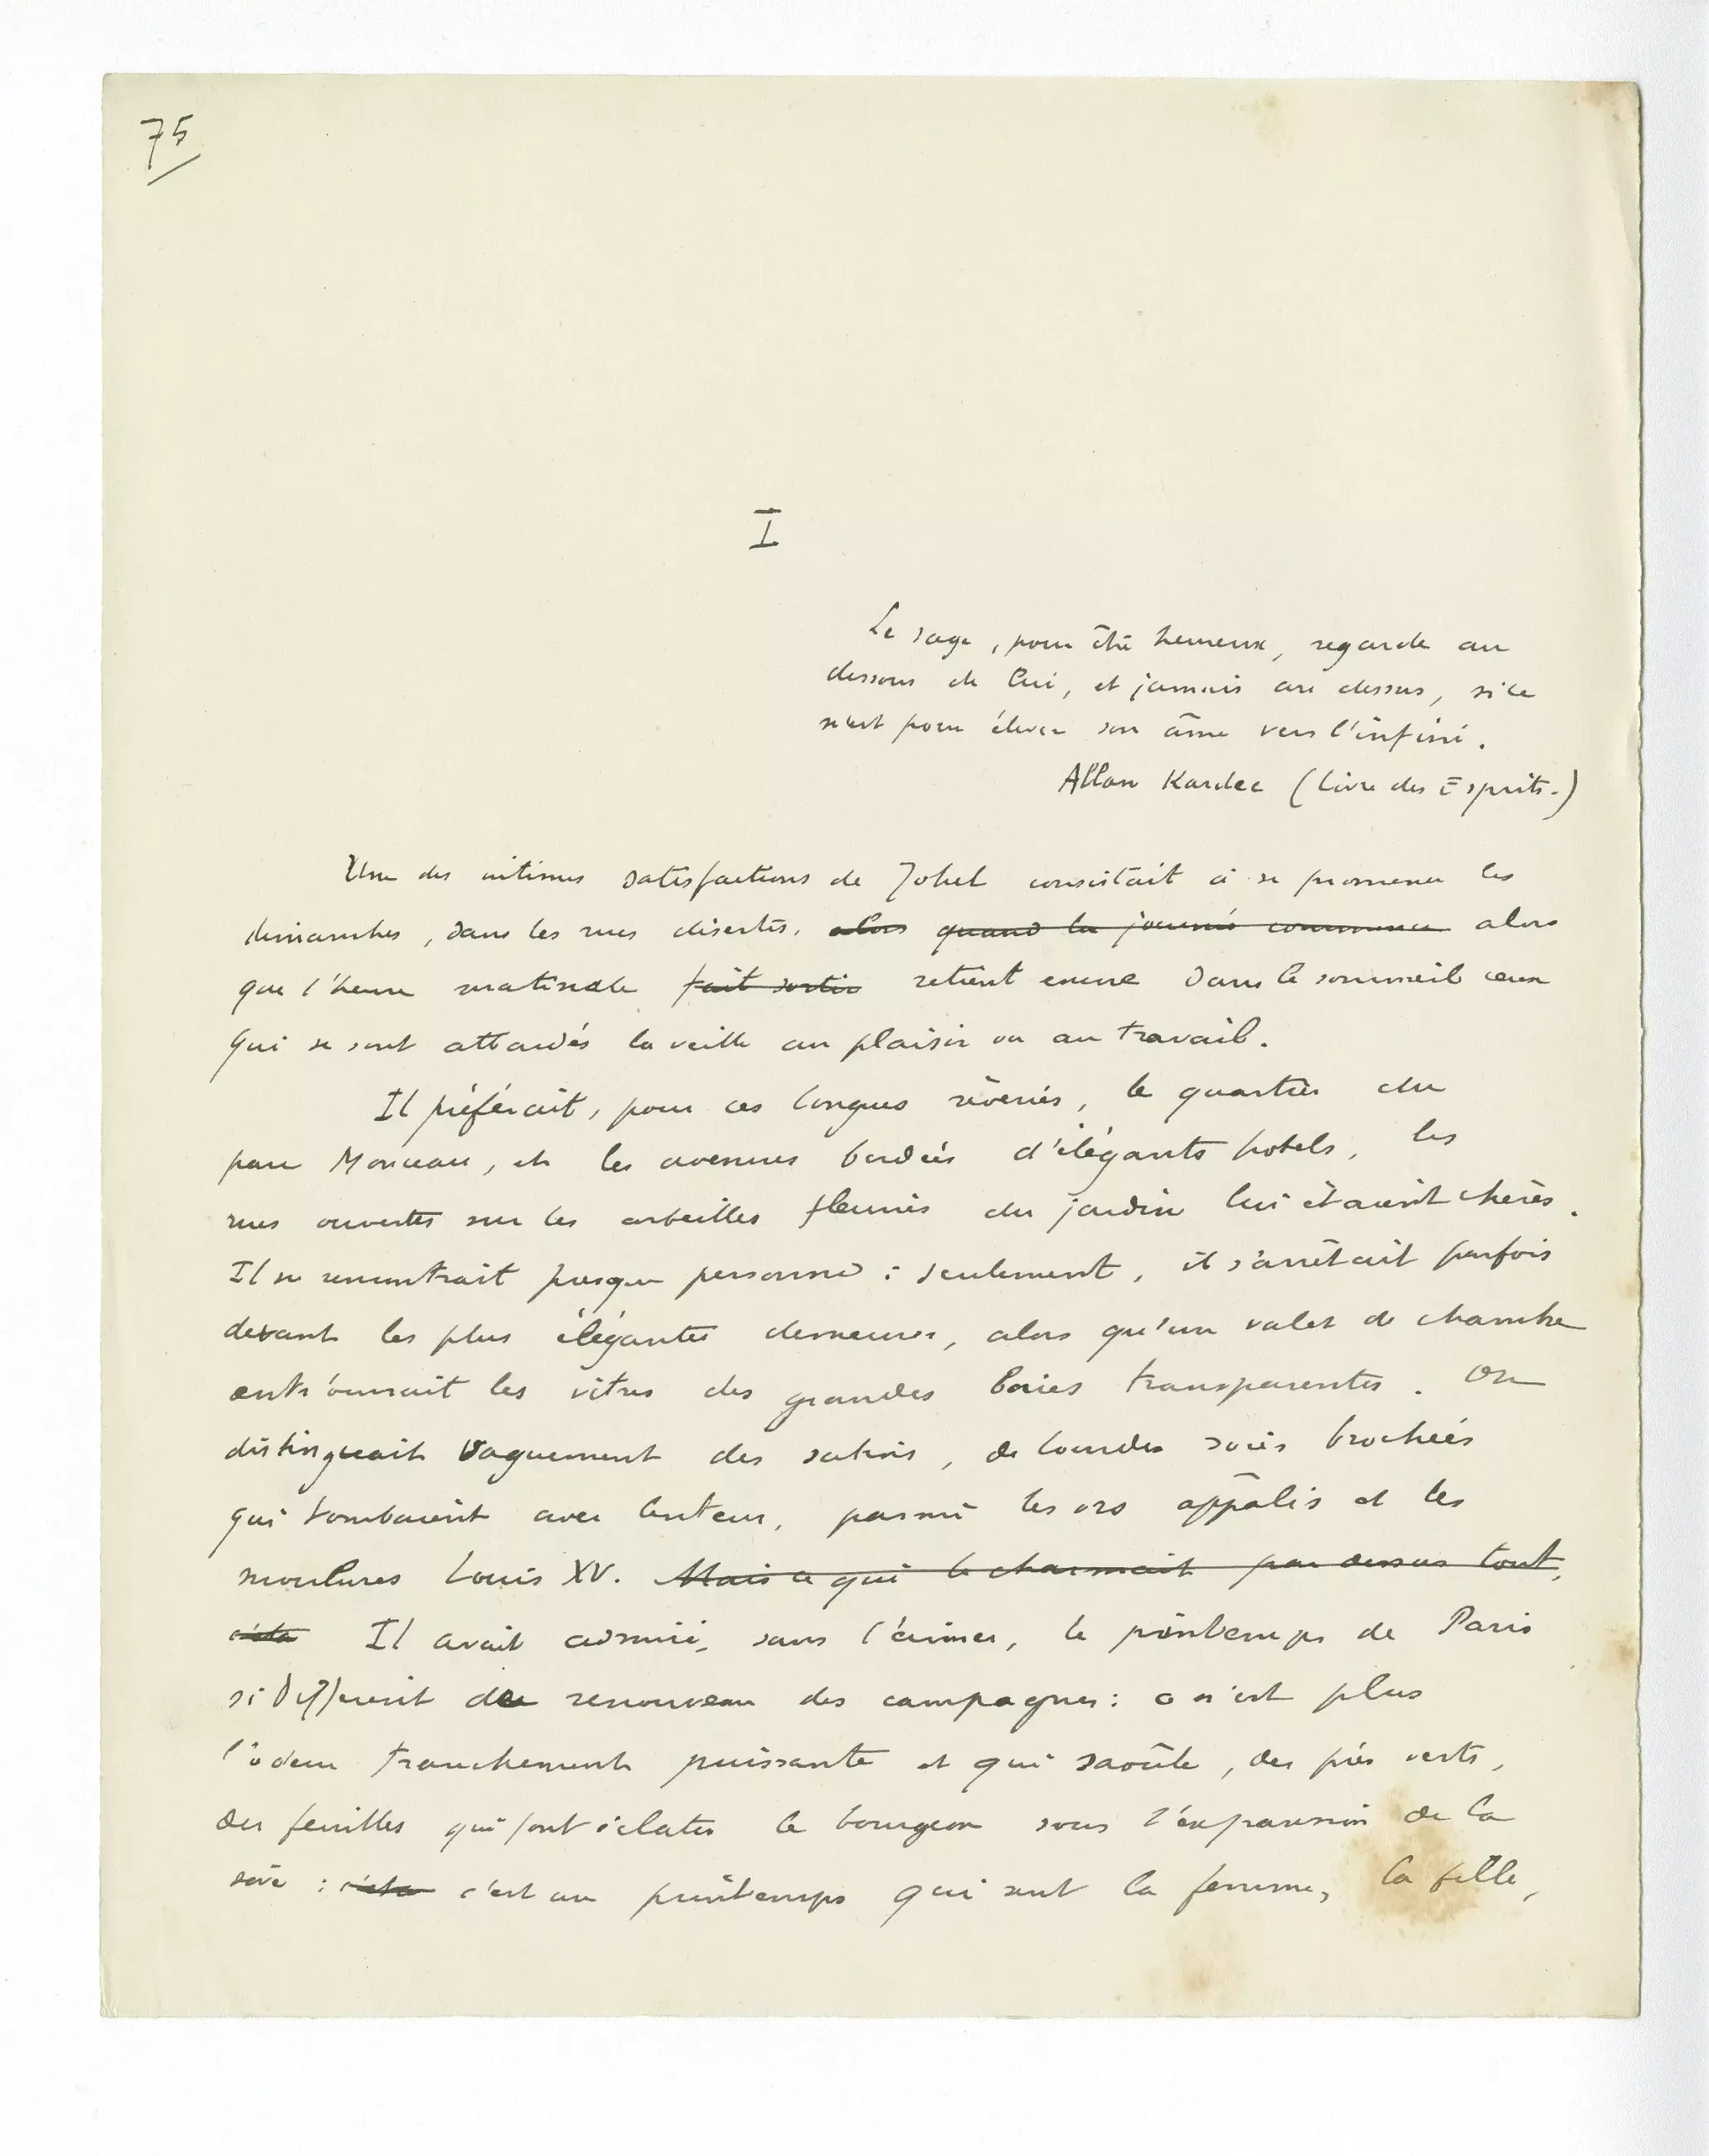 75
I
Le sage, pour être heureux, regarde au
dessous de lui, et jamais au dessus, si ce
n'est pour élever son âme vers l'infini.
Allan Kardec (Livre des Esprits.)
Une des intimes satisfactions de Johel consistait à se promener les
dimanches, dans les rues désertes, alors quand la journée commence alors
que l'heure matinale fait sortir retient encore dans le sommeil ceux
qui se sont attardés la veille au plaisir ou au travail.
Il préférait, pour ces longues rêveries, le quartier du
parc Monceau, et les avenues bordées d'élégants hotels, les
rues ouvertes sur les corbeilles fleuries du jardin lui étaient chères.
Il ne rencontrait presque personne : seulement, il s'arrêtait parfois
devant les plus élégantes demeures, alors qu'un valet de chambre
entr'ouvrait les vitres des grandes baies transparentes. On
distinguait vaguement des satins, de lourdes soies brochées
qui tombaient avec lenteur, parmi les ors appâlis et les
moulures Louis XV. Mais ce qui le charmait par dessus tout,
c'éta Il avait admiré, sans l'aimer, le printemps de Paris
si différent du renouveau des campagnes : ce n'est plus
l'odeur franchement puissante et qui saoûle, des prés verts,
des feuilles qui font éclater le bourgeon sous l'expansion de la
sève : c'éta c'est un printemps qui sent la femme, la fille,